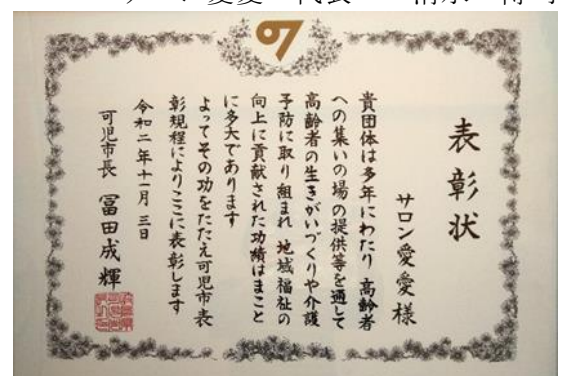 表彰状
サロン愛愛様
貴団体は多年にわたり 高齢者
への集いの場の提供等を通して
高齢者の生きがいづくりや介護
予防に取り組まれ 地域福祉の
向上に貢献された功績はまこと
に多大であります
よってその功をたたえ可児市表
彰規程によりここに表彰します
令和二年十一月三日
可児市長 冨田成輝